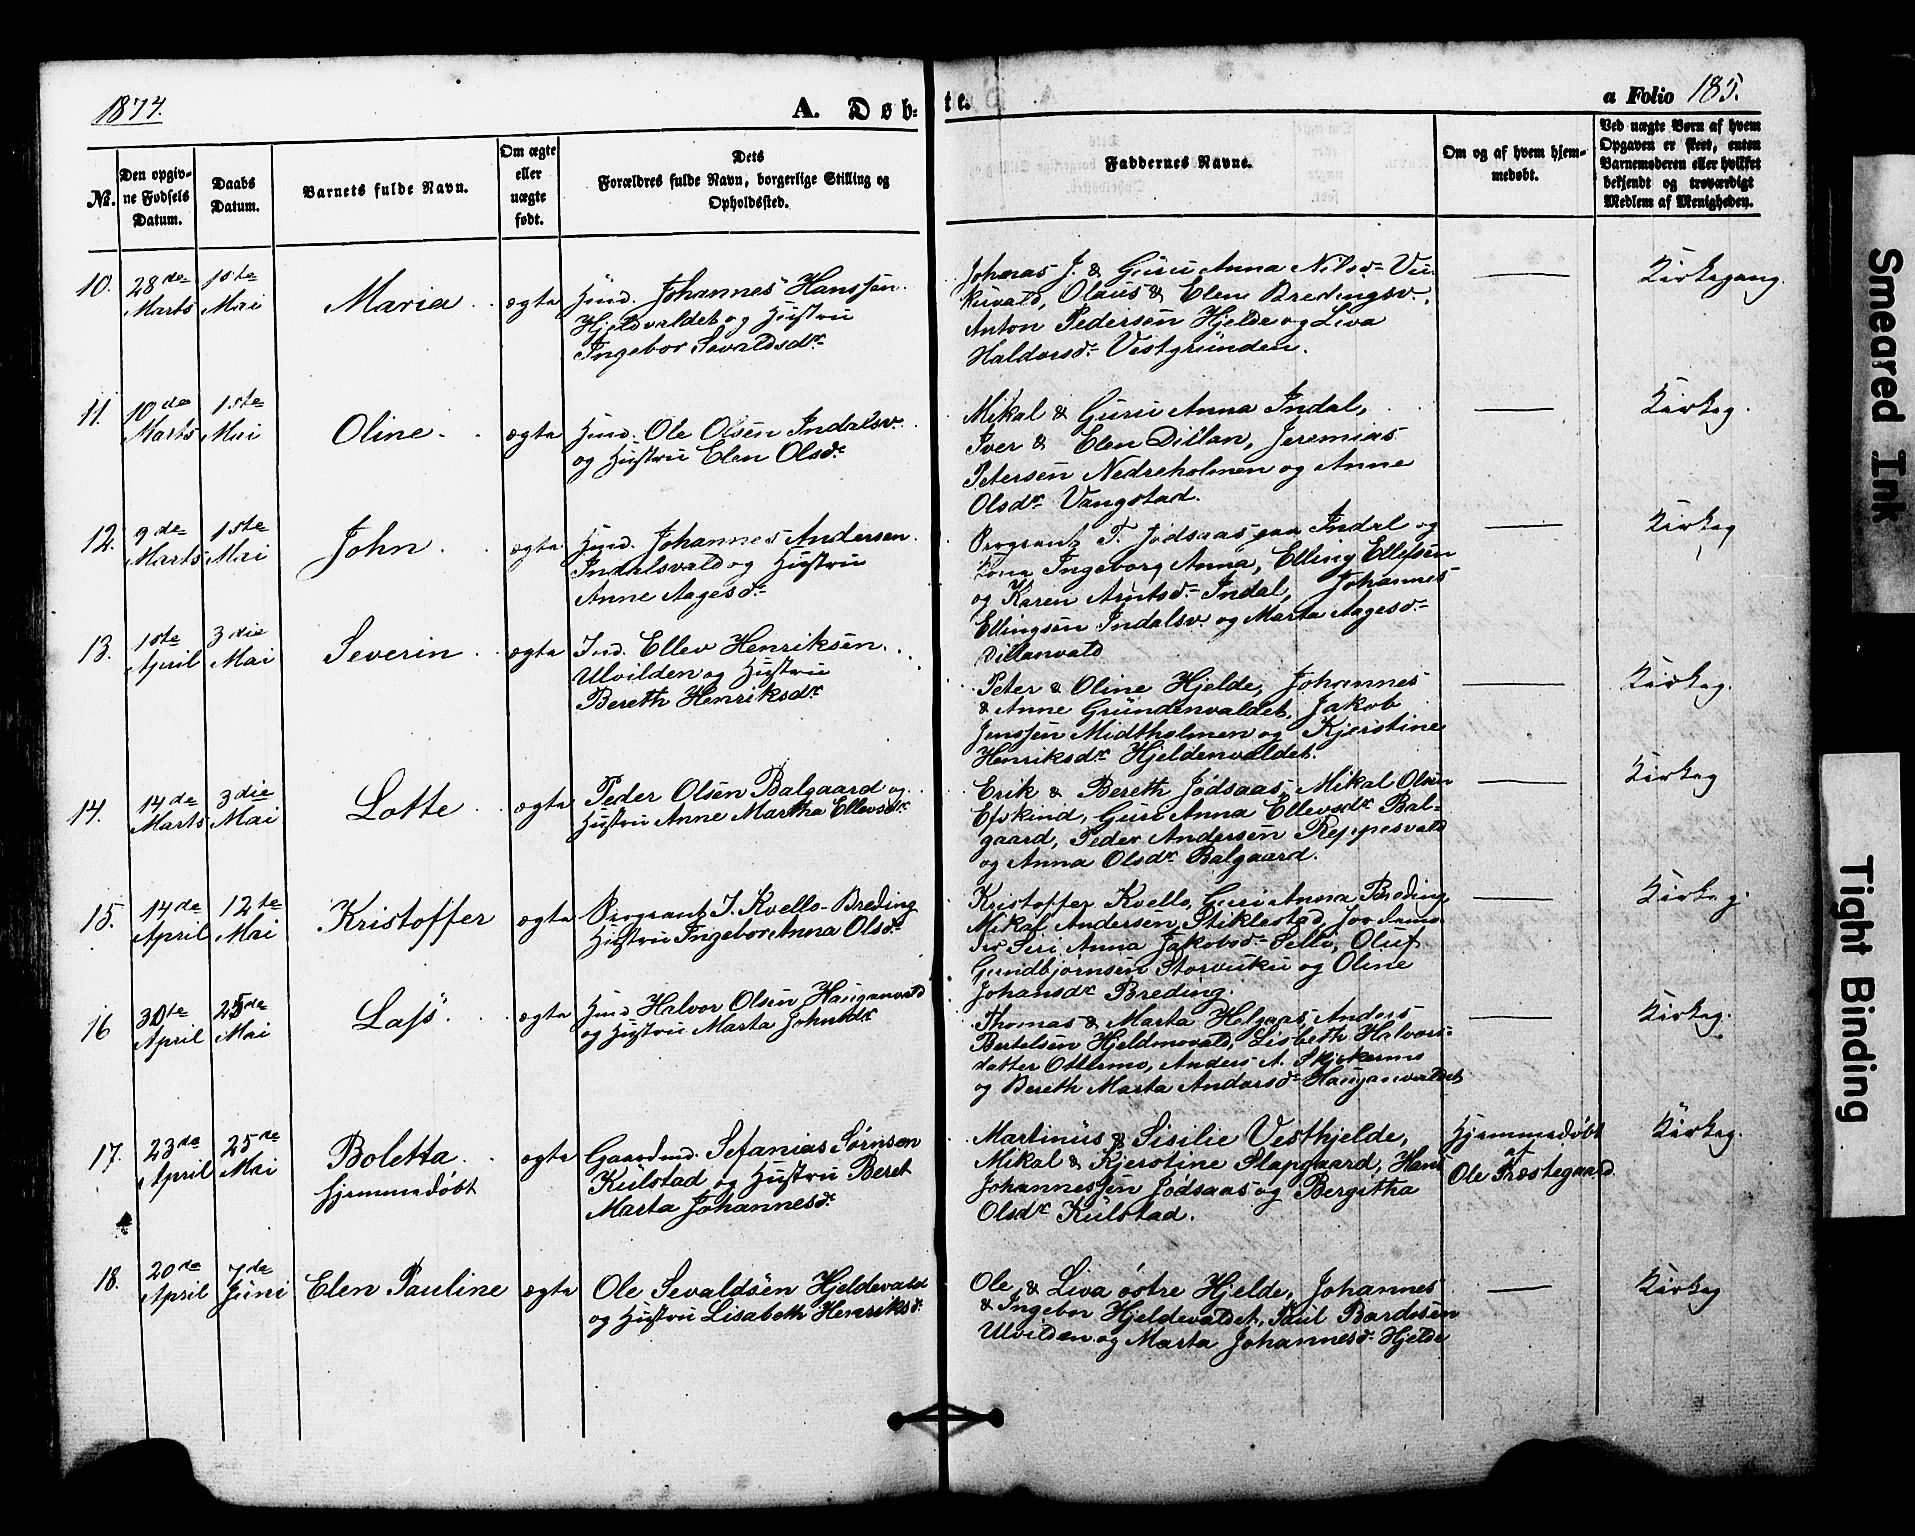 1874.
A. Døb-
te.
a Folio 185.
No.
Den opgiv-
ne Fødsels
Datum.
Daabs
Datum.
Barnets fulde Navn.
Om ægte
eller
uægte
født.
Dets
Forældres fulde Navn, borgerlige Stilling og
Opholdssted.
Faddernes Navne.
Om og af hvem hjem-
medøbt.
Ved uægte Børn af hvem
Opgaven er skeet, enten
Barnemoderen eller hvilket
bekjendt og troværdigt
Medlem af Menigheden.
10. 28de Marts 1ste Mai Maria ægte
Hmd. Johannes Hanssen
Hjeldvaldet og Hustru
Ingebor Sevaldsdr
Johnas J. & Guru Anna Nilsd. Vu-
kuvald, Olaus & Elen Bredingsv.,
Anton Pedersen Hjelde og Liva
Haldorsd. Vestgrunden.
Kirkegang.
11. 10de Marts 1ste Mai Oline ægte
Hmd. Ole Olsen Indalsv.
og Hustru Elen Olsdr
Mikal & Guru Anna Indal,
Iver & Elen Dillan, Jeremias
Petersen Nedreholmen og Anne
Olsdr Vangstad.
Kirkeg.
12. 9de Marts 1ste Mai John ægte
Hmd. Johannes Andersen
Indalsvald og Hustru
Anne Aagesd.
Sergeant T. Jødsaas paa Indal og
Kone Ingeborg Anna, Elling Ellefsen
og Karen Arntsd. Indal, Johannes
Ellingsen Indalsv. og Marta Aagesd.
Dillanvald
Kirkeg
13. 1ste April 3die Mai Severin ægte
Ind. Ellev Henriksen
Ulvilden og Hustru
Bereth Henriksdr
Peter & Oline Hjelde, Johannes
& Anne Grundenvaldet, Jakob
Jenssen Midtholmen og Kjerstine
Henriksdr Hjeldenvaldet.
Kirkeg.
14. 14de Marts 3die Mai Lotte ægte
Peder Olsen Balgaard og
Hustru Anne Martha Ellevsdr
Erik & Bereth Jødsaas, Mikal Olsen
Efskind, Guru Anna Ellevsdr Bal-
gaard, Peder Andersen Reppesvald
og Anna Olsdr Balgaard.
Kirkeg
15. 14de April 12te Mai Kristoffer ægte
Sergeant J. Kvello-Breding
Hustru Ingebor Anna Olsd.
Kristoffer Kvello, Guri Anna Breding,
Mikal Andersen Stiklestad,
Siri Anna Jakobsd. Sello, Oluf
Gundbjørnsen Storvuku og Oline
Johansdr Breding.
Kirkeg.
16 30te April 25de Mai Lass. ægte
Hmd Halvor Olsen Hauganvald
og Hustru Marta Johnsdr
Thomas & Marta Helgaas, Anders
Bertelsen Hjeldmovald, Lisbeth Halvors-
datter Ottermo, Anders A. Skjækermo
og Bereth Marta Andorsd. Hauganvaldet
Kirkeg.
17. 23de April 25de Mai Boletta.
hjemmedøbt
ægte
Gaardmd. Sefanias Sørnsen
Kulstad og Hustru Beret
Marta Johannesd.
Martinus & Sisilie Vesthjelde,
Mikal & Kjerstine Slapgaard, Hans
Johannessen Jødsaas og Bergitha
Olsdr Kulstad.
Hjemmedøbt
af
Ole Præstegaard
Kirkeg.
18. 20de April 7de Juni Elen Pauline ægte
Ole Sevaldsen Hjeldevald
og Hustru Lisabeth Henriksd.
Ole & Liva østre Hjelde, Johannes
& Ingebor Hjeldevaldet, Paul Bardosen
Ulvilden og Marta Johannesd. Hjelde
Kirkeg
Smeared Ink
Tight Binding